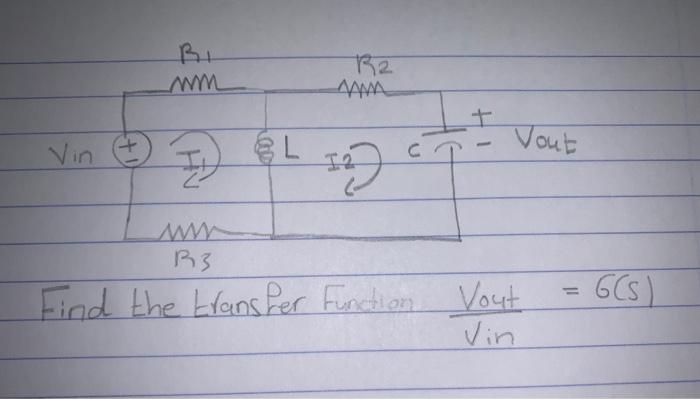 R1
R2
+
Vin + - I1 L I2 C - Vout
R3
Find the transfer Function Vout = G(s)
Vin